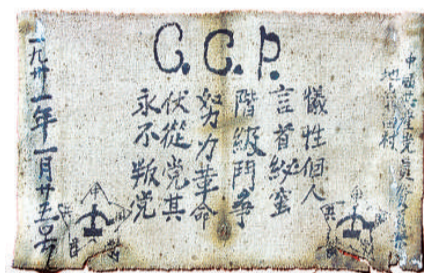 C.C.P.
中國共產党員
地点北田村
犧牲個人
言首秘蜜
階級鬥爭
努力革命
伏從党其
永不叛党
一九卅一年一月廿五号